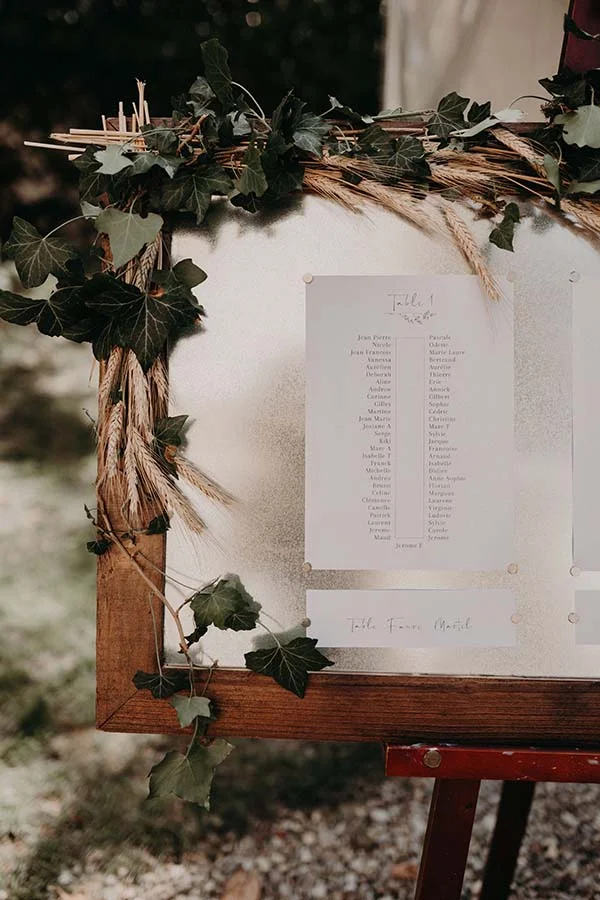 Table 1
Jean Pierre
Nicole
Jean François
Vanessa
Aurélien
Deborah
Aline
Andrew
Corinne
Gilles
Martine
Jean Marie
Josiane A
Serge
Kiki
Marc A
Isabelle T
Franck
Michelle
Andrea
Bruno
Celine
Clémence
Camille
Patrick
Laurent
Jerome
Maud
Pascale
Odette
Marie Laure
Bertrand
Aurélie
Thierry
Eric
Annick
Gilbert
Sophie
Cédric
Christine
Marc F
Sylvie
Jacque
Francoise
Arnaud
Isabelle
Didier
Anne Sophie
Florian
Margaux
Laurene
Virginie
Ludovic
Sylvie
Carole
Jerome
Jerome F
Table Faure Martel